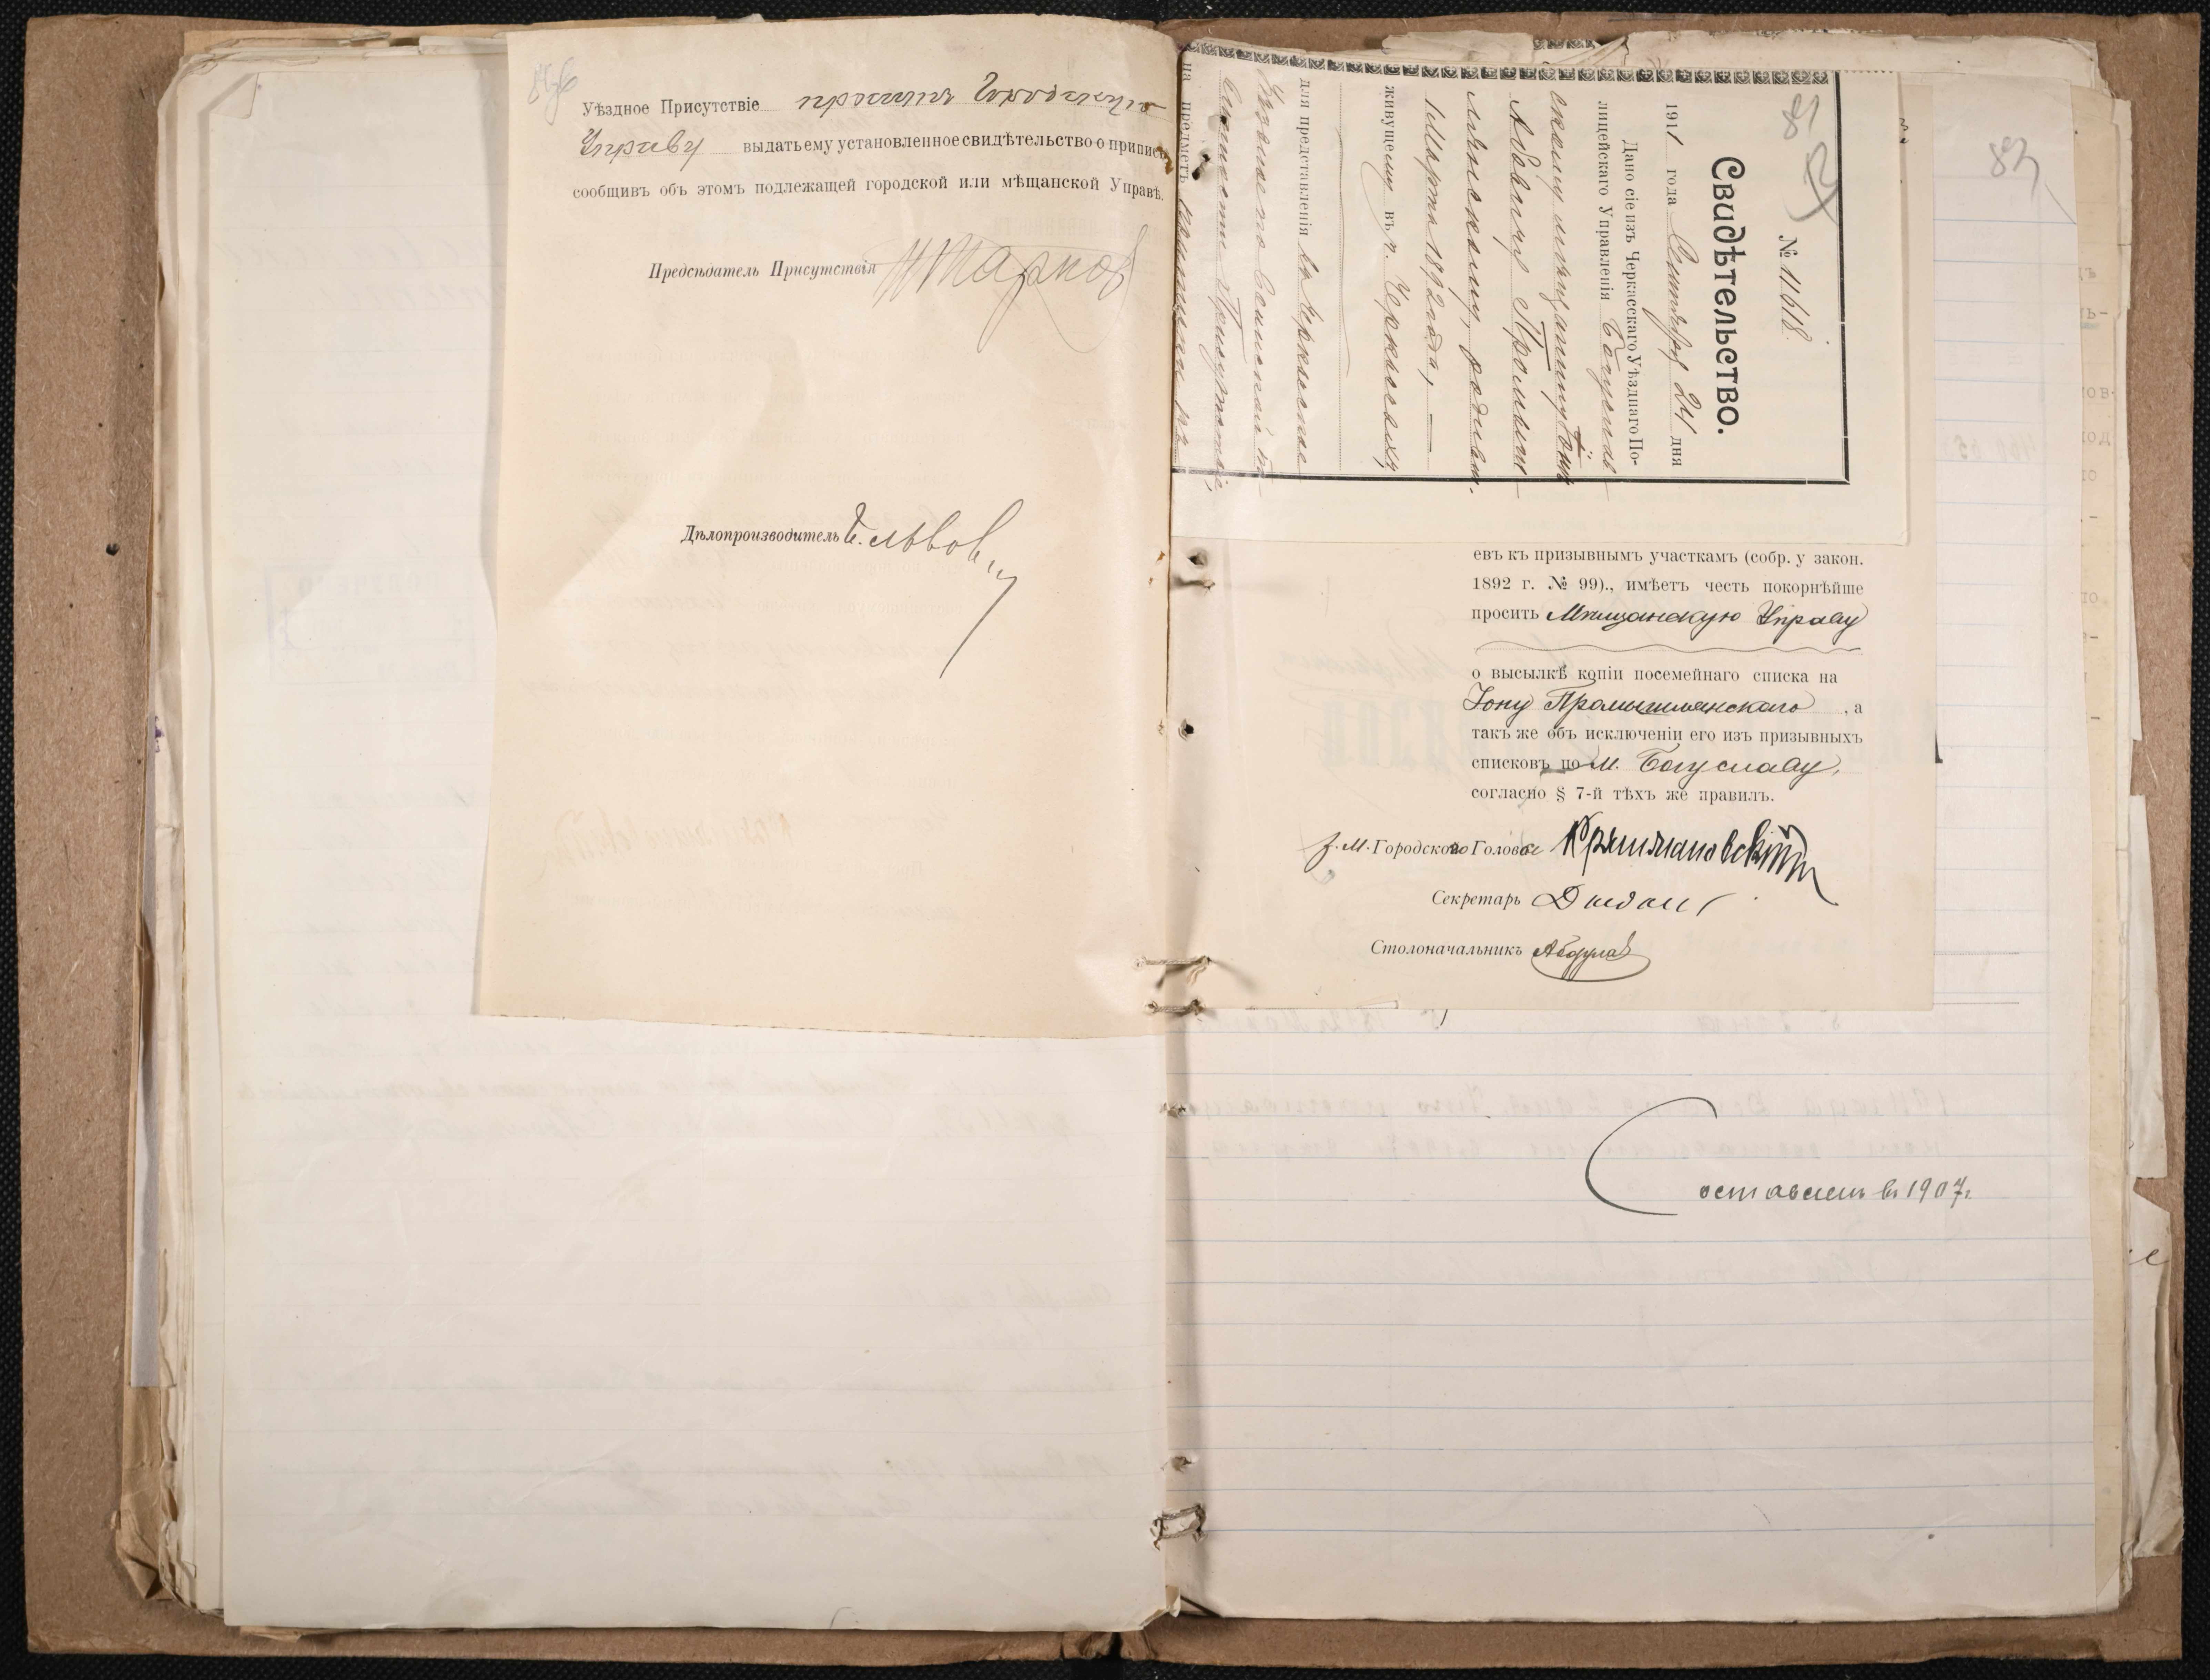 Уѣздное Присутствіе проситъ Городскую
Управу выдать ему установленное свидѣтельство о припис
сообщивъ объ этомъ подлежащей городской или мѣщанской Управѣ.
Предсѣдатель Присутствія
Дѣлопроизводитель
83
№ 11618
Свидѣтельство.
1911 года Сентября 24 дня
Дано сіе изъ Черкасскаго Уѣзднаго По-
лицейскаго Управленія Богуслав
скому мѣщанину Іону
Абовичу Промыш
лянскому, родивш.
1 Марта 1892 года, —
живущему въ г. Черкассахъ
для представленія въ Черкасское
Уѣздное по воинской по
винности Присутствіе,
на предметъ приписки къ
евъ къ призывнымъ участкамъ (собр. у закон.
1892 г. № 99)., имѣетъ честь покорнѣйше
просить Мѣщанскую Управу
о высылкѣ копіи посемейнаго списка на
Іону Промышлянскаго, а
такъ же объ исключеніи его изъ призывныхъ
списковъ по м. Богуславу,
согласно § 7-й тѣхъ же правилъ.
З. М. Городского Головы
Секретарь
Столоначальникъ
Составленъ въ 1907 г.